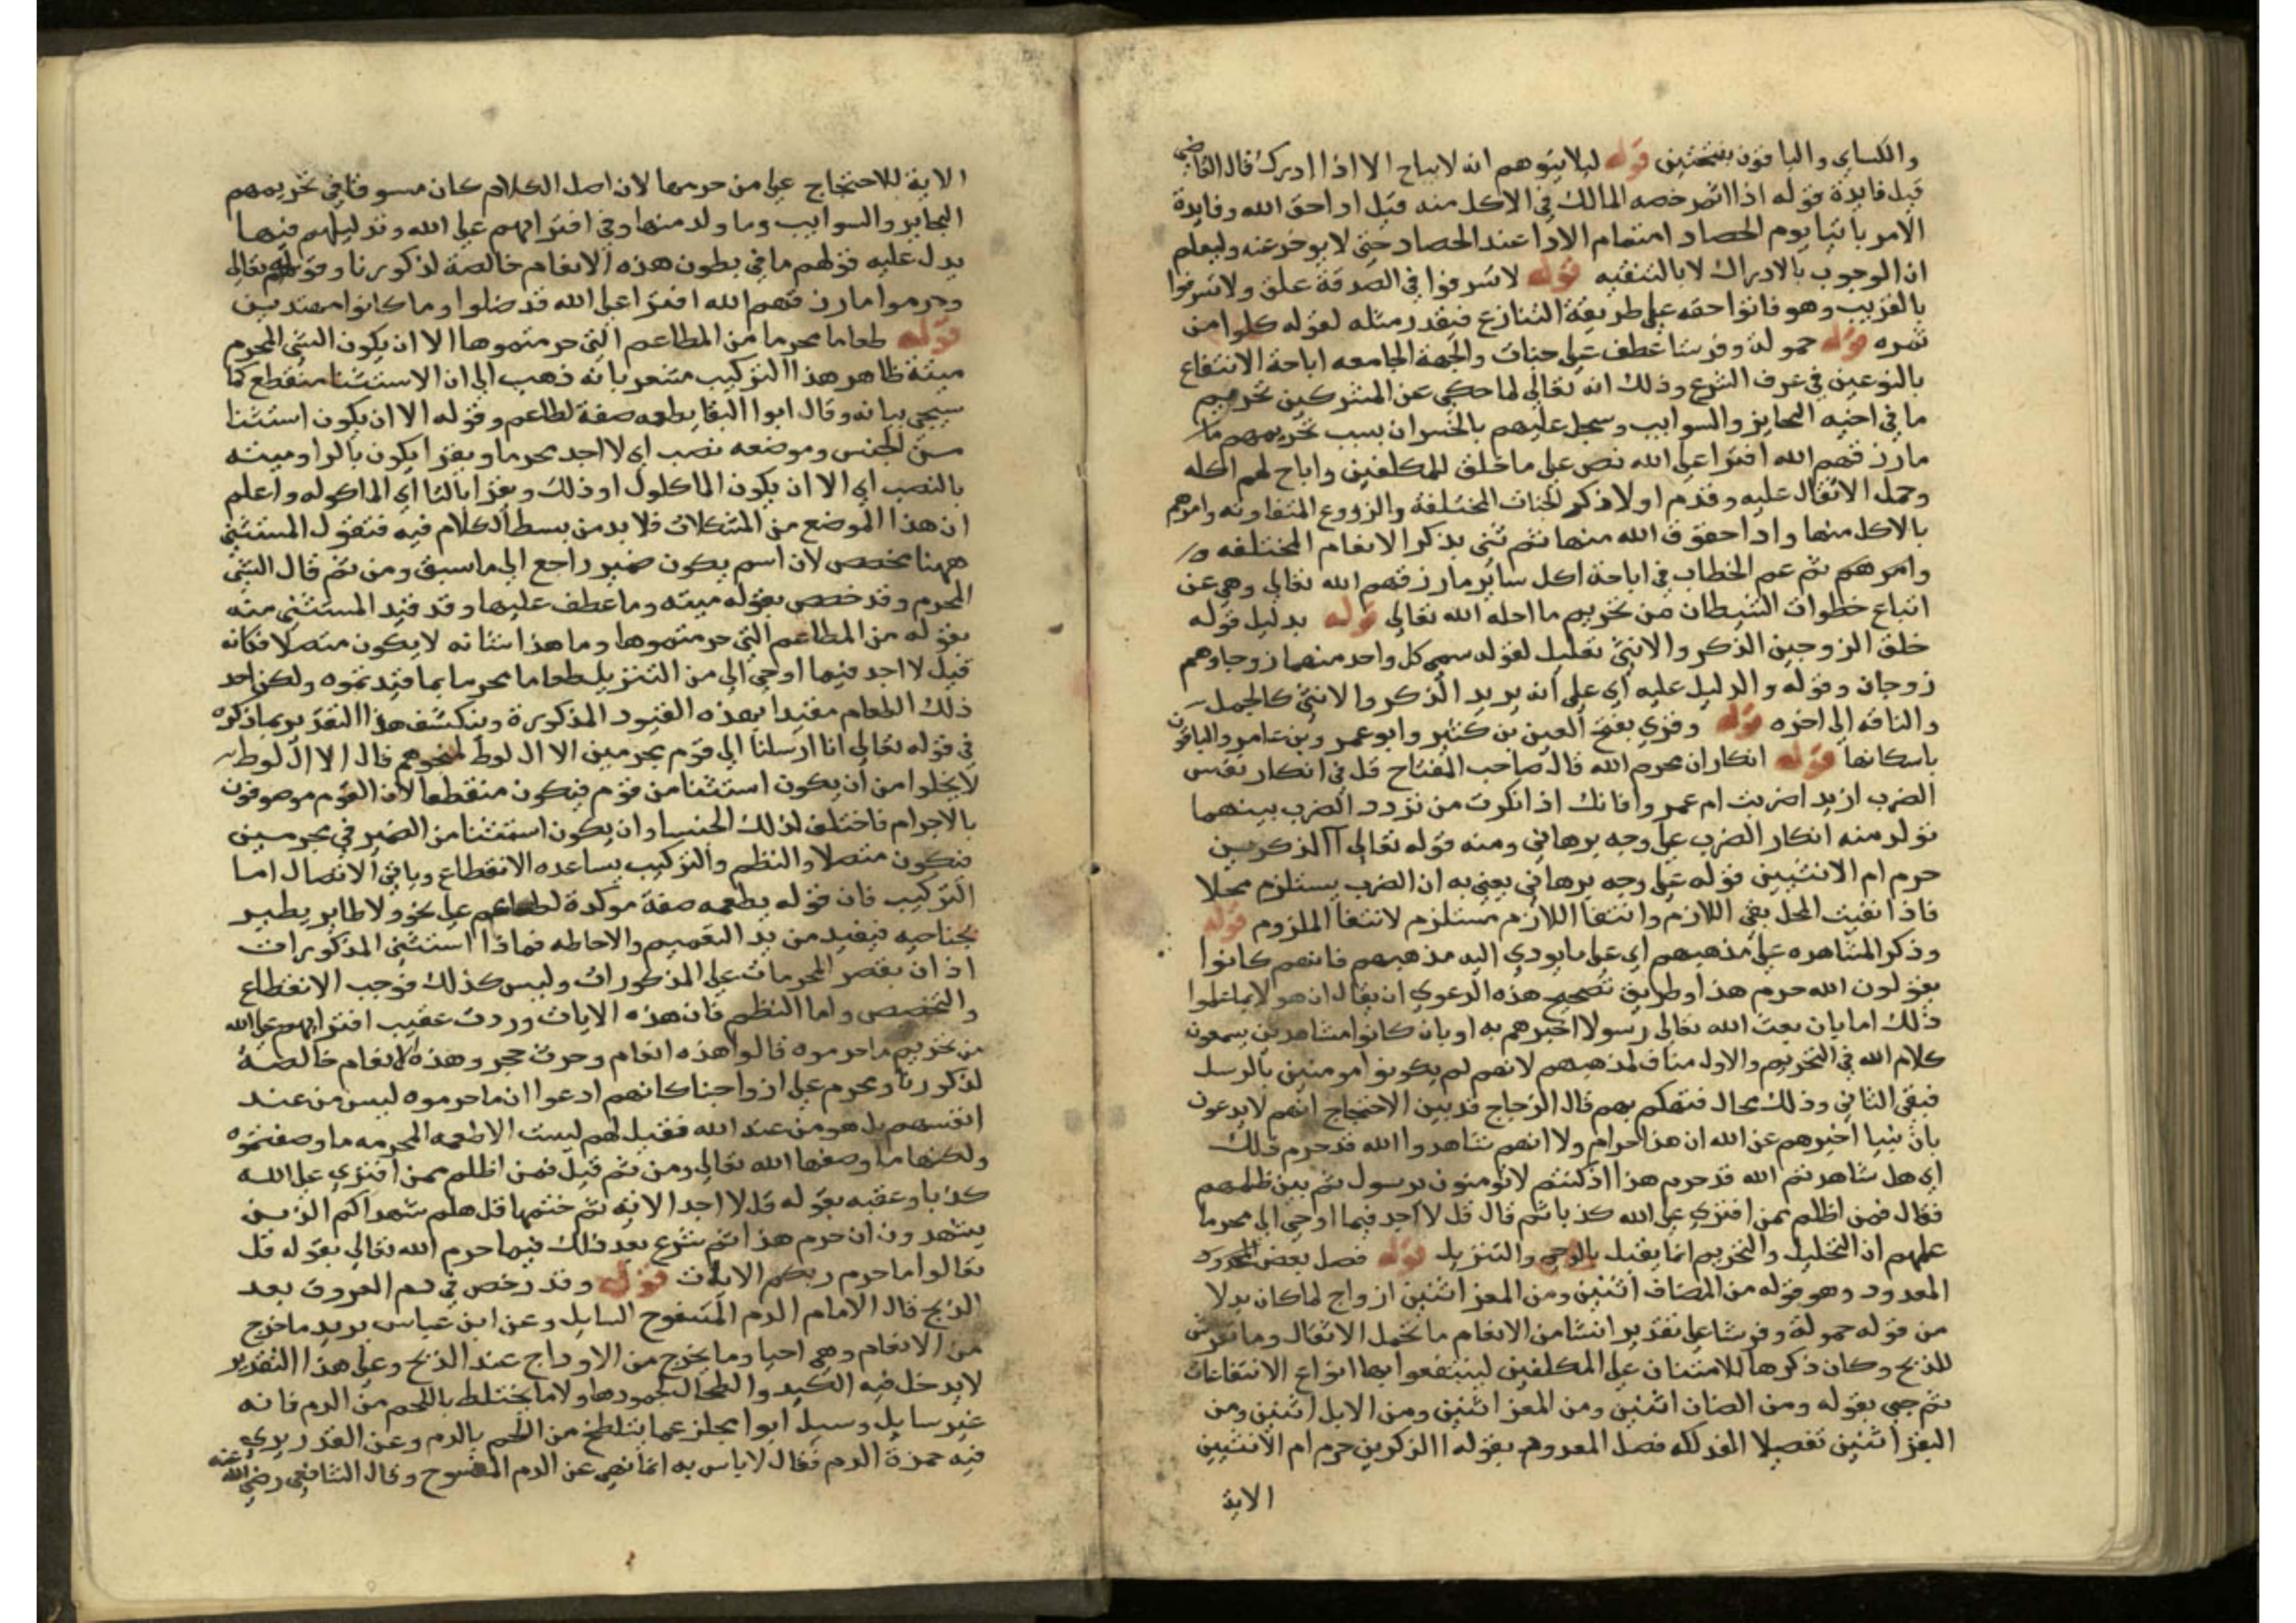 والكساي والباقون بفتحتين قوله ليلا يتوهم انه لا يباح الا اذا ادرك قال القاضي
قيل فايدة قوله اذا اثمر رخصه المالك في الاكل منه قبل اداحق الله وفايدة
الامر باتيا يوم الحصاد اهتمام الادا عند الحصاد حتى لا يوخر عنه وليعلم
ان الوجوب بالادراك لا بالتنقيه قوله لا تسرفوا في الصدقة علق ولا تسرفوا
بالقريب وهو فاتوا حقه على طريقة التنازع فيقدر مثله لقوله كلوا من
ثمره قوله حمولة وفرشا عطف على جنات والجهة الجامعه اباحة الانتفاع
بالنوعين في عرف الشرع وذلك انه تعالى لما حكى عن المشركين تحريم
ما في اجنه البحاير والسوايب وسجل عليهم بالخسران بسبب تحريمهم ما
مارزقهم الله افترا على الله نص على ما خلق للمكلفين واباح لهم اكله
وحمل الاثقال عليه وقدم اولا ذكر الجنات المختلفة والزروع المتفاوته وامرهم
بالاكل منها واداحقوق الله منها ثم ثنى بذكر الانعام المختلفه و
وامرهم ثم عم الخطاب في اباحة اكل ساير مارزقهم الله تعالى وهي عن
اتباع خطوات الشيطان من تحريم ما احله الله تعالى قوله بدليل قوله
خلق الزوجين الذكر والانثى تعليل لقوله سمي كل واحد منهما زوجا وهم
زوجان وقوله والدليل عليه اي على انه يريد الذكر والانثى كالجمل
والناقه الى اخره قوله وقري بفتح العين بن كثير وابو عمر وبن عامر والباقون
باسكانها قوله انكاران يحرم الله قال صاحب المفتاح قل في انكار نفس
الضرب ازيدا ضربت ام عمر وافانك اذا انكرت من تردد الضرب بينهما
تولد منه انكار الضرب على وجه برهاني ومنه قوله تعالى آالذكرين
حرم ام الانثيين قوله على وجه برهاني يعني به ان الضرب يستلزم محلا
فاذا نفيت المحل بقي اللازم وانتفا اللازم مستلزم لانتفا الملزوم قوله
وذكر المشاهره على مذهبهم اي على ما يودي اليه مذهبهم فانهم كانوا
يقولون الله حرم هذا وطريق تصحيح هذه الدعوى ان يقال ان هو لا بما علموا
ذلك اما بان بعث الله تعالى رسولا اخبرهم به او بان كانوا مشاهدين يسمعون
كلام الله في التحريم والاول مناف لمذهبهم لانهم لم يكونوا مومنين بالرسل
فبقي الثاني وذلك محال فتهكم بهم قال الزجاج قد بين الاحتجاج انهم لا يدعون
بان نبيا اخبرهم عن الله ان هذا حرام ولا انهم شاهدوا الله قد حرم ذلك
اي هل شاهدتم الله قد حرم هذا اذ كنتم لا تومنون برسول ثم بين ظلمهم
فقال فمن اظلم ممن افترى على الله كذبا ثم قال قل لا اجد فيما اوحى الي محرما
علمهم ان التحليل والتحريم انما يقبل بالوحي والتنزيل قوله فصل بعض المعدود
المعدود وهو قوله من المضاف اثنين ومن المعز اثنين ازواج لما كان بدلا
من قوله حمولة وفرشا على تقدير انشا من الانعام ما تحمل الاثقال وما تفرش
للذبح وكان ذكرها للامتنان على المكلفين لينتفعوا بها انواع الانتفاعات
ثم جي بقوله ومن الضان اثنين ومن المعز اثنين ومن الابل اثنين ومن
البقر اثنين تفصيلا الفذلكه فصل المعدوم بقوله االذكرين حرم ام الانثيين
الاية
الاية للاحتجاج على من حرمها لان اصل الكلام كان مسوقا في تحريمهم
البحاير والسوايب وما ولد منها وفي افترايهم على الله وتدليلهم فيها
يدل عليه قولهم ما في بطون هذه الانعام خالصة لذكورنا وقوله تعالى
وحرموا مارزقهم الله افترا على الله قد ضلوا وما كانوا مهتدين
قوله طعاما محرما من المطاعم التي حرمتموها الا ان يكون الشي المحرم
ميتة ظاهر هذا التركيب مشعر بانه ذهب الى ان الاستثنا منقطع كما
سيجي بيانه وقال ابوا البقا يطعمه صفة لطاعم وقوله الا ان يكون استثنا
من الجنس وموضعه نصب اي لا اجد محرما ويقرا يكون باليا وميتة
بالنصب اي الا ان يكون الماكول او ذلك ويقرا بالتا اي الماكوله واعلم
ان هذا الموضع من المشكلات فلا بد من بسط الكلام فيه فنقول المستثنى
ههنا مخصص لان اسم يكون ضمير راجع الى ما سبق ومن ثم قال الشي
المحرم وقد خصص بقوله ميته وما عطف عليها وقد قيد المستثنى منه
بقوله من المطاعم التي حرمتموها وما هذا شانه لا يكون متصلا فكانه
قيل لا اجد فيما اوحي الي من التنزيل طعاما محرما بما قيدتموه ولكن اجد
ذلك الطعام مقيدا بهذه القيود المذكورة وينكشف هذا التقدير بما ذكره
في قوله تعالى انا ارسلنا الى قوم مجرمين الا ال لوط لمنجوهم قال الا ال لوط
لا يخلوا من ان يكون استثنا من قوم فيكون منقطعا لان القوم موصوفون
بالاجرام فاختلف لذلك الجنسا وان يكون استثنا من الضمير في مجرمين
فيكون متصلا والنظم والتركيب يساعده الانقطاع ويابى الاتصال اما
التركيب فان قوله يطعمه صفة موكدة لطاعم على نحو ولا طاير يطير
بجناحيه فيفيد من يد التعميم والاحاطه فماذا استثنى المذكورات
اذ ان يقصر المحرمات على المذكورات وليس كذلك فوجب الانقطاع
والتخصص واما النظم فان هذه الايات وردت عقيب افترايهم على الله
من تحريم ما حرموه قالوا هذه انعام وحرث حجر وهذه الانعام خالصة
لذكورنا ومحرم على ازواجنا كانهم ادعوا ان ما حرموه ليس من عند
انفسهم بل هو من عند الله فقيل لهم ليست الاطعمه المحرمه ما وصفتموه
ولكنها ما وصفها الله تعالى ومن ثم قيل فمن اظلم ممن افترى على الله
كذبا وعقبه بقوله قل لا اجد الايه ثم ختمها قل هلم شهداكم الذين
يشهدون ان حرم هذا ثم شرع بعد ذلك فيما حرم الله تعالى بقوله قل
تعالوا ما حرم ربكم الايات قوله وقد رخص في دم العروق بعد
الذبح قال الامام الدم المسفوح السايل وعن ابن عباس يريد ما خرج
من الانعام وهي احيا وما يخرج من الاوداج عند الذبح وعلى هذا التقدير
لا يدخل فيه الكبد والطحال لجمودها ولا ما يختلط باللحم من الدم فانه
غير سايل وسيل ابوا مجلز عما يتلطخ من اللحم بالدم وعن القدر يرى
فيه حمرة الدم فقال لا باس به انما نهي عن الدم المسفوح وقال الشافعي رضي الله عنه